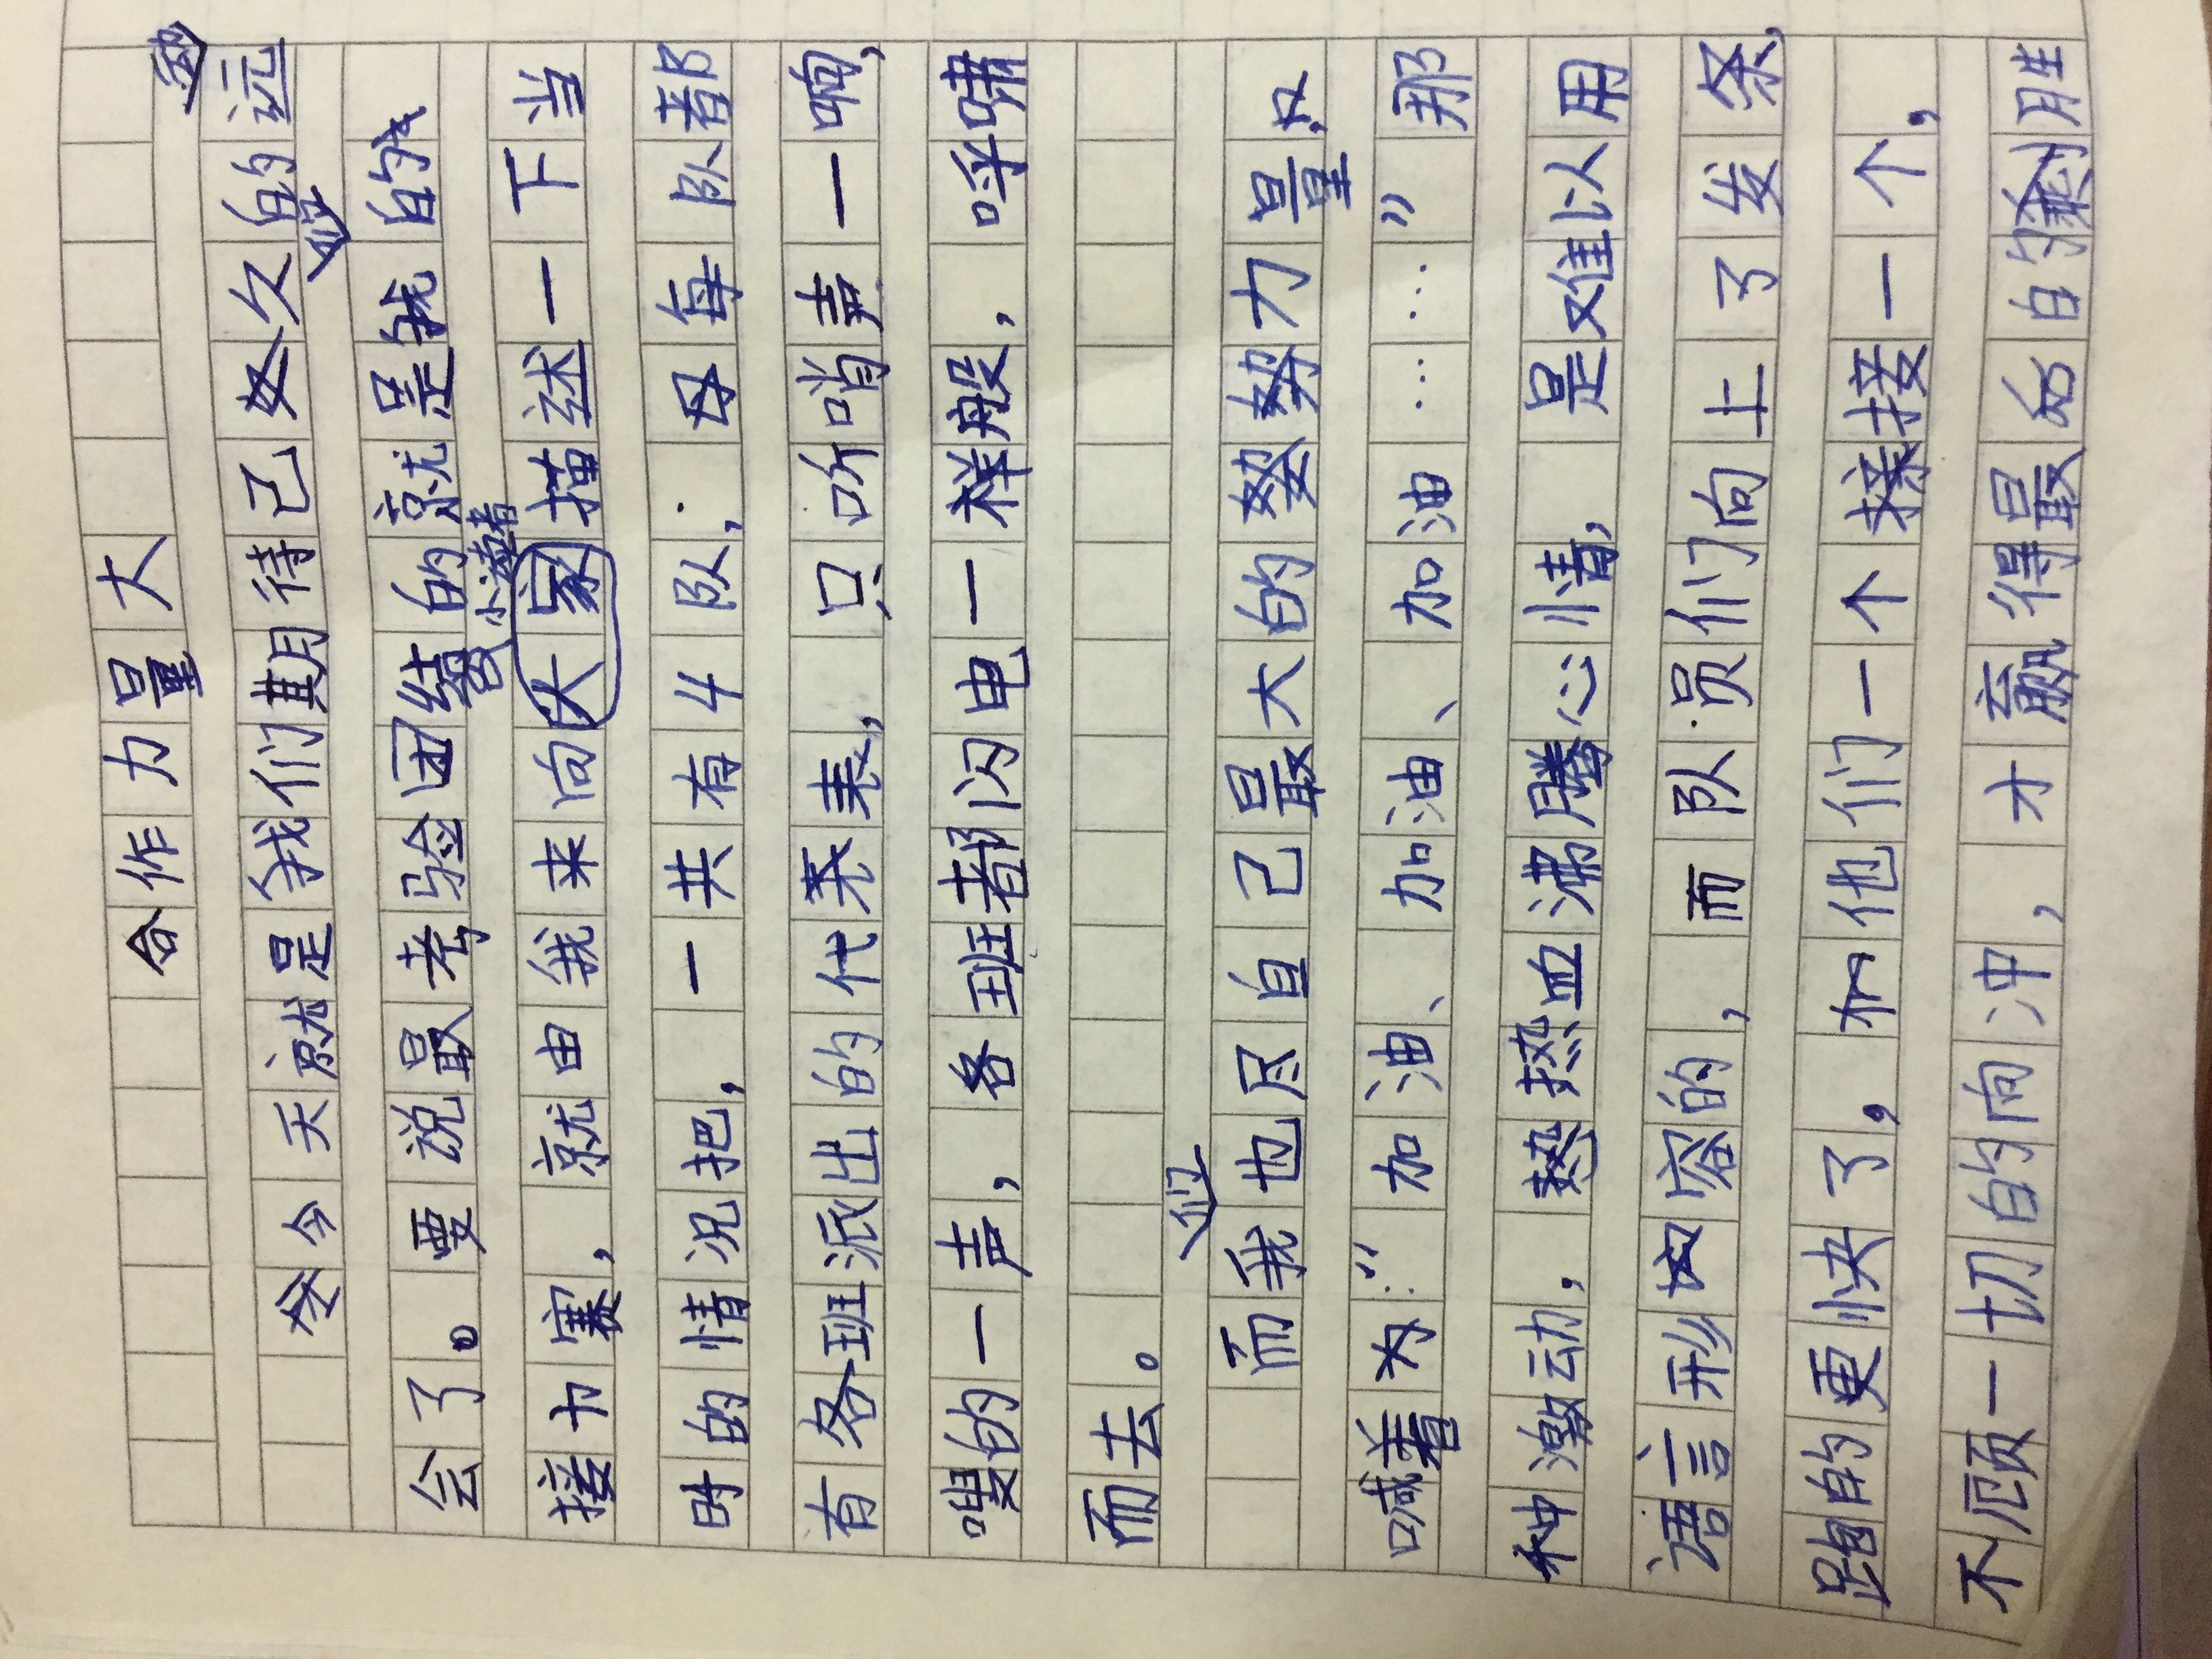 合作力量大
今天就是我们期待已久的远动
会了。要说最考验团结的就是我们的
小读者
接力赛,就由我来向大家描述一下当
时的情况把,一共有4队,每队都
有各班派出的代表,只听哨声一响,
嗖的一声,各班都闪电一般,呼啸
而去。
而我们也尽自己最大的努力量
喊着:“加油、加油、加油……”那
种激动,热血沸腾心情,是难以用
语言形容的,而队员们向上了发条,
跑的更快了。他们一个接一个,
不顾一切的向冲,才赢得最后的胜